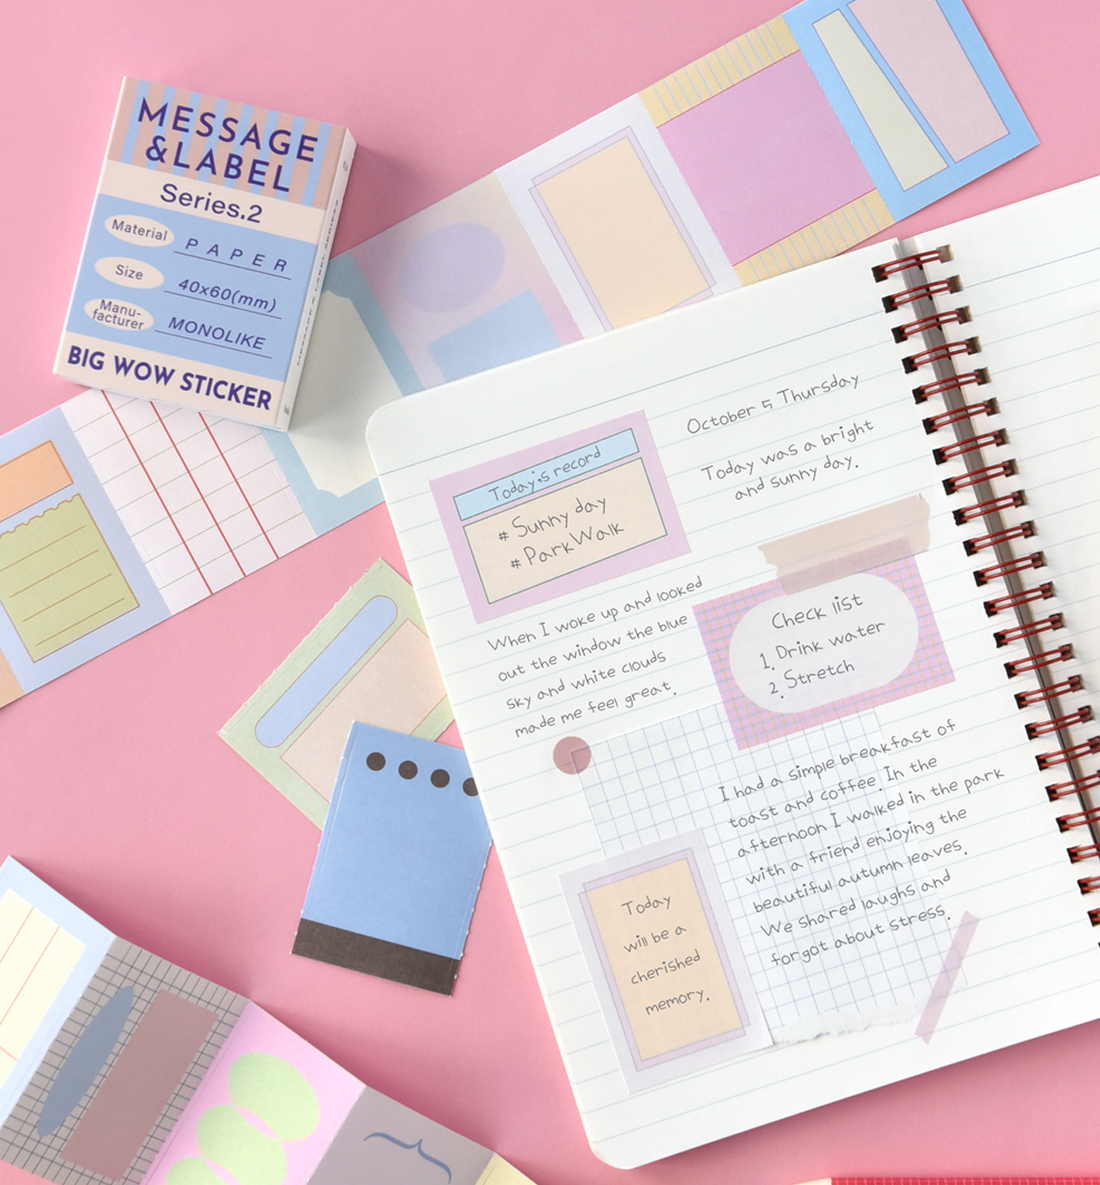 MESSAGE
&LABEL
Series.2
Material PAPER
Size 40x60(mm)
Manu-
facturer MONOLIKE
BIG WOW STICKER
October 5 Thursday
Today was a bright
and sunny day.
Today's record
# Sunny day
# Park Walk
When I woke up and looked
out the window the blue
sky and white clouds
made me feel great.
Check list
1. Drink water
2. Stretch
I had a simple breakfast of
toast and coffee. In the
afternoon I walked in the park
with a friend enjoying the
beautiful autumn leaves.
We shared laughs and
forgot about stress.
Today
will be a
cherished
memory.